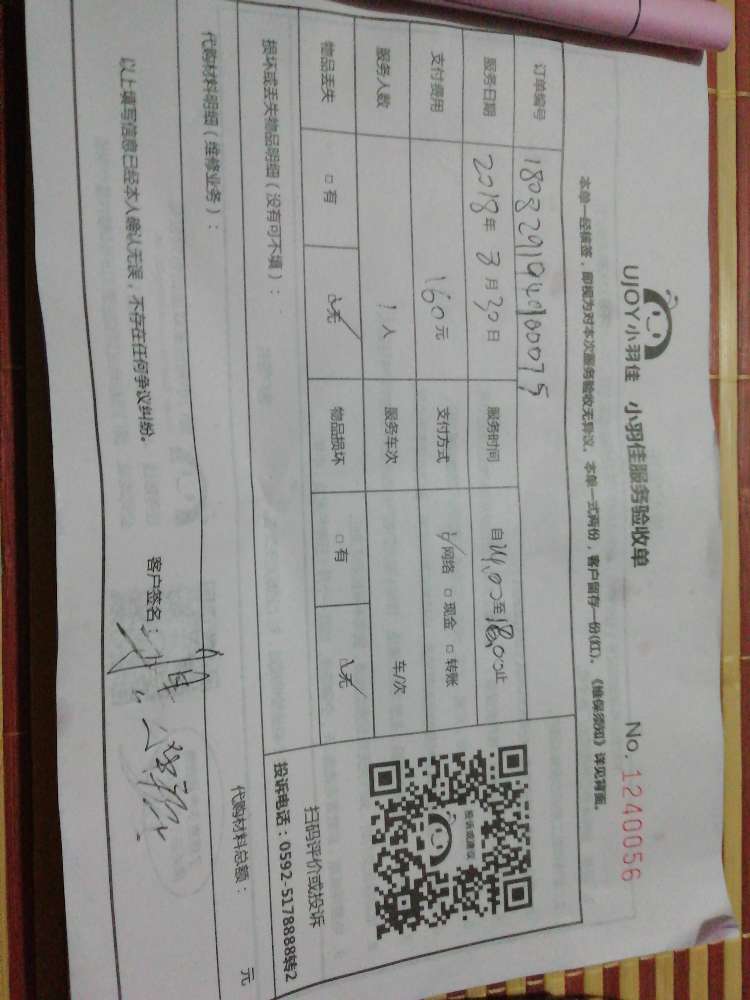 UJOY小羽佳 小羽佳服务验收单 No. 1240056
本单一经核签，即视为对本次服务验收无异议。本单一式两份，客户留存一份(红)。《维保须知》详见背面。
订单编号
服务日期 2018年3月30日 服务时间 自14:00至18:00止
支付费用 160元 支付方式 ☑网络 □现金 □转账
服务人数 1人 服务车次 车/次
物品丢失 □有 ☑无 物品损坏 □有 ☑无
投诉或建议
扫码评价或投诉
投诉电话：0592-5178888转2
损坏或丢失物品明细（没有可不填）：
代购材料明细（维修业务）： 代购材料总额： 元
以上填写信息已经本人确认无误，不存在任何争议纠纷。 客户签名：